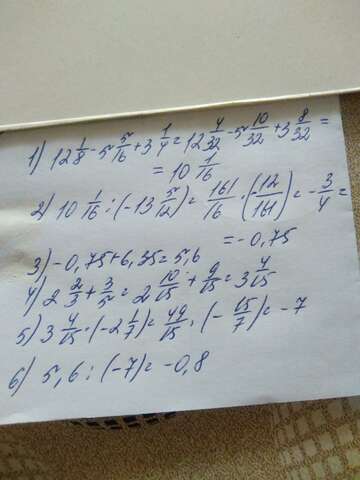 1) 12 1/8 - 5 5/16 + 3 1/4 = 12 4/32 - 5 10/32 + 3 8/32 =
= 10 1/16
2) 10 1/16 : (-13 5/12) = 161/16 · (-12/161) = -3/4 =
= -0,75
3) -0,75 + 6,35 = 5,6
4) 2 2/3 + 3/5 = 2 10/15 + 9/15 = 3 4/15
5) 3 4/15 · (-2 1/7) = 49/15 · (-15/7) = -7
6) 5,6 : (-7) = -0,8